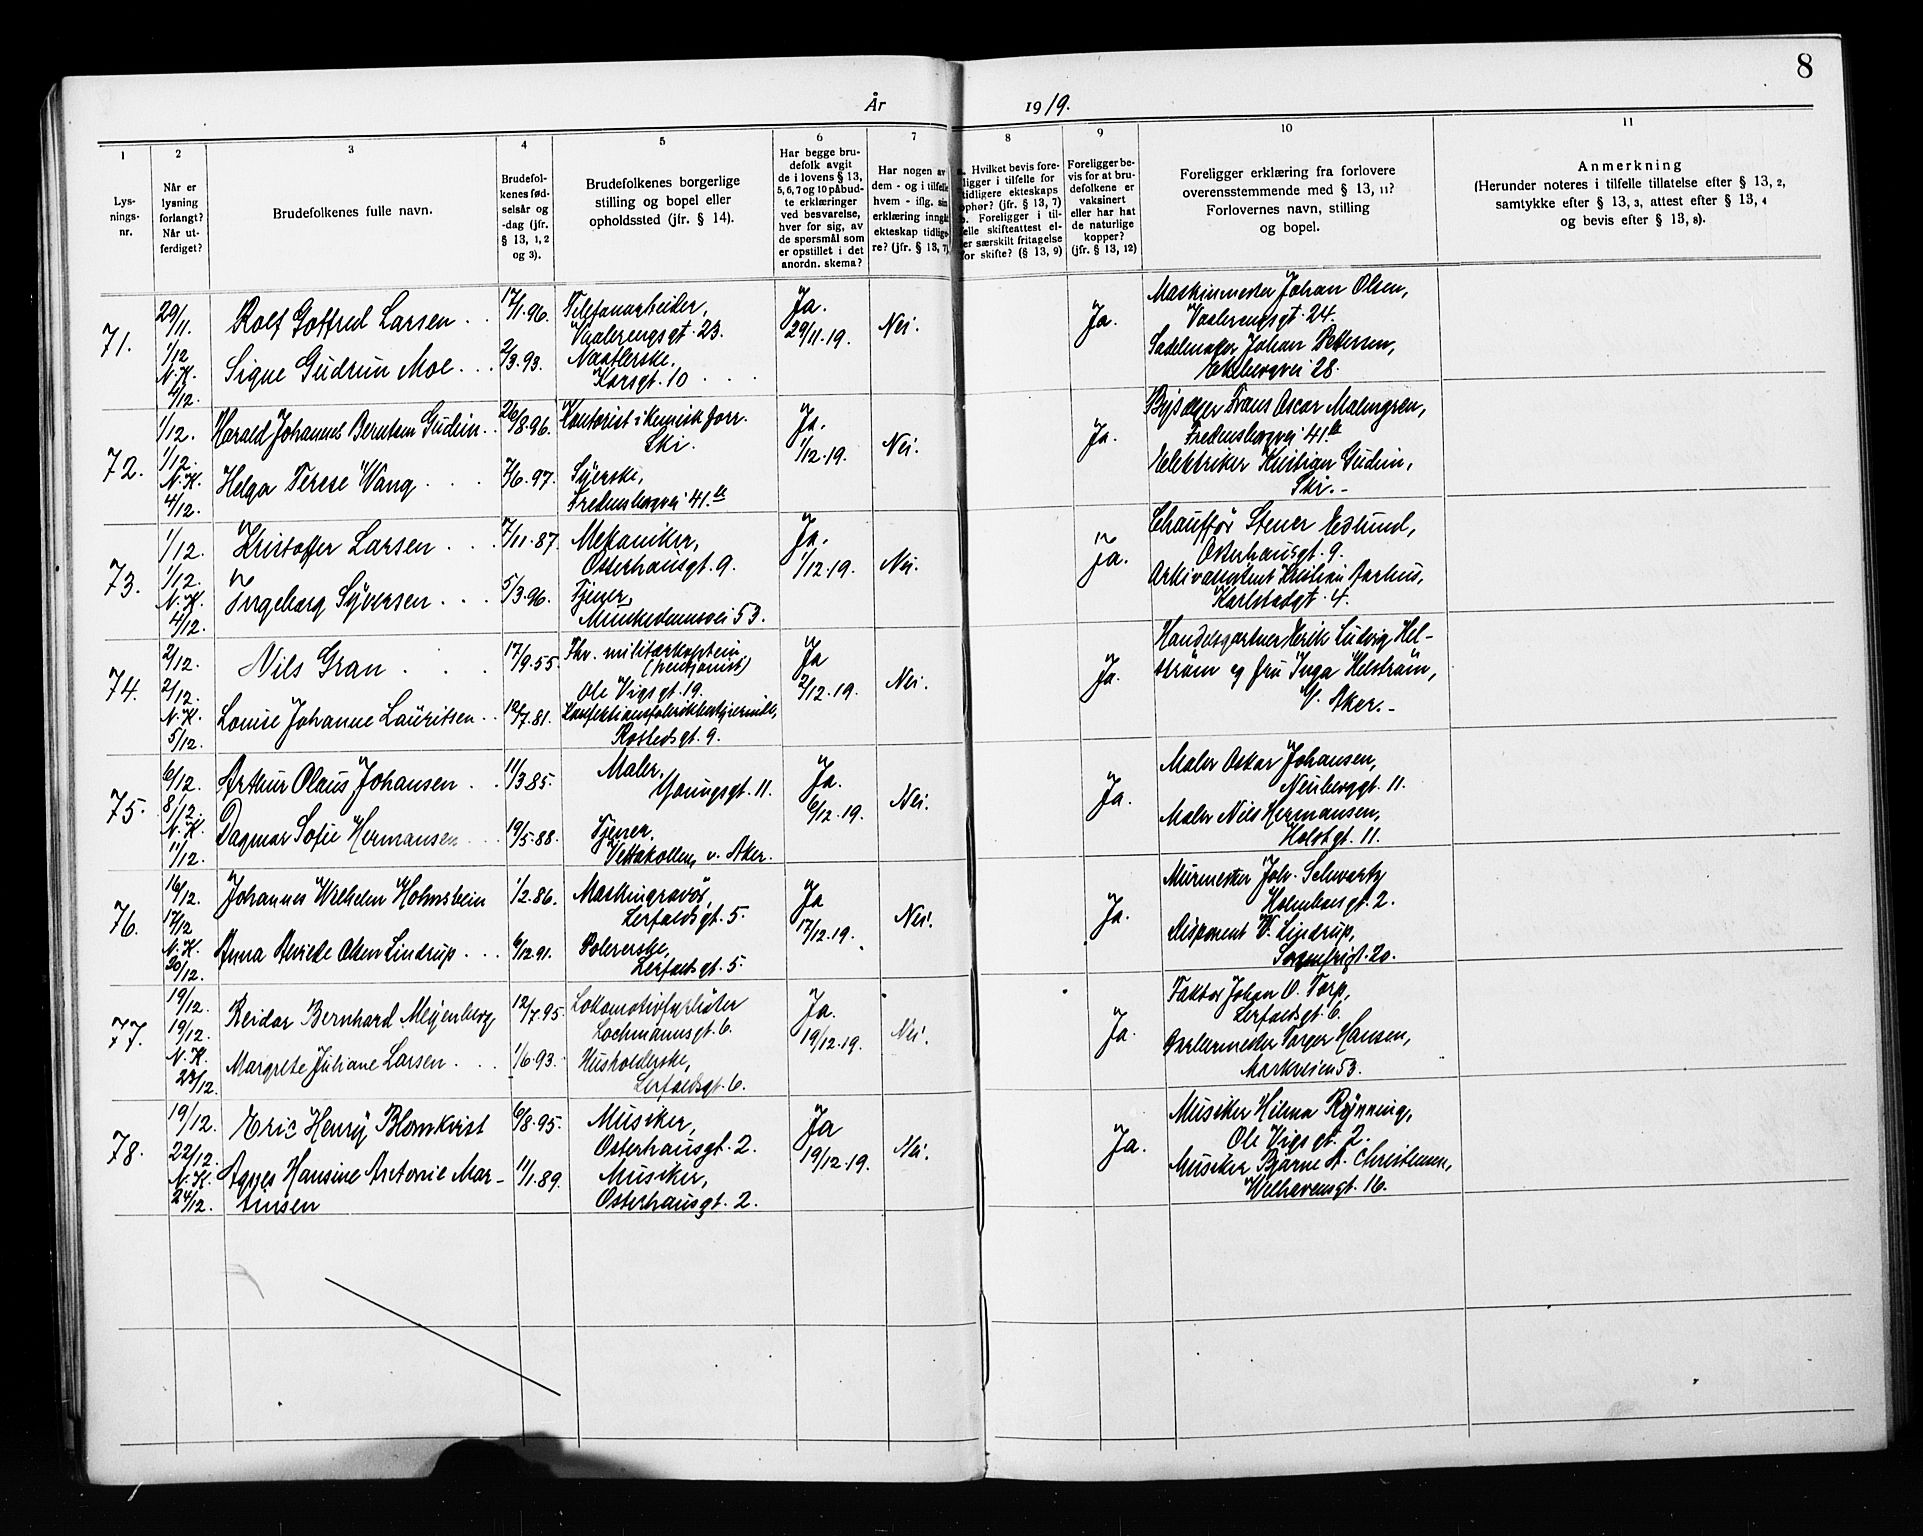 8
År 1919.
1 2 3 4 5 6 7 8 9 10 11
Lys-
nings-
nr.
Når er
lysning
forlangt?
Når ut-
ferdiget?
Brudefolkenes fulle navn.
Brudefol-
kenes fød-
selsår og
-dag (jfr.
§ 13, 1, 2
og 3).
Brudefolkenes borgerlige
stilling og bopel eller
opholdssted (jfr. § 14).
Har begge bru-
defolk avgit
de i lovens § 13,
5, 6, 7 og 10 påbud-
te erklæringer
ved besvarelse,
hver for sig, av
de spørsmål som
er opstillet i det
anordn. skema?
Har nogen av
dem - og i tilfelle
hvem - iflg. sin
erklæring inngåt
ekteskap tidlige-
re? (jfr. § 13, 7)
a. Hvilket bevis fore-
ligger i tilfelle for
tidligere ekteskaps
ophør? (jfr. § 13, 7)
b. Foreligger i til-
felle skifteattest el-
ler særskilt fritagelse
for skifte? (§ 13, 9)
Foreligger be-
vis for at bru-
defolkene er
vaksinert
eller har hat
de naturlige
kopper?
(jfr. § 13, 12)
Foreligger erklæring fra forlovere
overensstemmende med § 13, 11?
Forlovernes navn, stilling
og bopel.
Anmerkning
(Herunder noteres i tilfelle tillatelse efter § 13, 2,
samtykke efter § 13, 3, attest efter § 13, 4
og bevis efter § 13, 8).
71.
29/11.
1/12
N.K.
4/12.
Rolf Gotfred Larsen . .
Signe Gudrun Moe . . .
17/1.96.
2/3.93.
Telefonarbeider,
Vaalerengsgt. 23.
Naatlerske,
Korsgt. 10 . . .
Ja.
29/11.19.
Nei.
Ja.
Maskinmester Johan Olsen,
Vaalerengsgt. 24.
Sadelmager Johan Pettersen,
Ekebergvei 28.
72.
1/12.
1/12.
N.K.
4/12.
Harald Johannes Berntsen Gudim. .
Helga Terese Wang . . .
26/8.96.
7/6.97.
Kontorist i kemisk forr.
Ski.
Syerske,
Fredensborgvei 41.b
Ja.
1/12.19.
Nei.
Ja.
Frans Oscar Malmgren,
Fredensborgvei 41b
Elektriker Kristian Gudim,
Ski.-
73.
1/12.
1/12.
N.K.
4/12.
Kristoffer Larsen . . .
Ingeborg Syversen . . .
7/11.87.
5/3.96.
Mekaniker,
Osterhausgt. 9.
Tjener,
Munkedamsvei 53.
Ja.
1/12.19.
Nei.
ja.
Chauffør Stener Edlund,
Osterhausgt. 9.
Arkivassistent Kristian Aarhus,
Karlstadgt. 4.
74.
2/12.
2/12.
N.K.
5/12.
Nils Gran . . .
Louise Johanne Lauritsen . .
17/9.55.
12/7.81.
Fhv. militærkaptein
(pensjonist)
Ole Vigsgt. 19.
Rostedsgt. 9.
Ja
2/12.19.
Nei.
Ja.
Handelsgartner Erik Ludvig Hel-
ström og fru Inga Helström,
V. Aker.-
75.
6/12.
8/12.
N.K.
11/12.
Arthur Olaus Johansen . .
Dagmar Sofie Hermansen . . .
11/3.85.
19/5.88.
Maler,
Youngsgt. 11.
Tjener,
Vettakollen, v. Aker.
Ja.
6/12.19.
Nei.
Ja.
Maler Oskar Johansen,
Neuberggt. 11.
Maler Nils Hermansen,
Holstgt. 11.
76.
16/12.
17/12
N.K.
20/12.
Johannes Wilhelm Holmstein
Anna Olsen Lindrup . . .
1/2.86.
6/12.91.
Maskingravör,
Lerfaldsgt. 5.
Polererske,
Lerfaldsgt. 5.
Ja
17/12.19.
Nei.
Ja.
Murmester Joh. Schwartz
Holmboesgt. 2.
Disponent V. Lindrup,
Sorgenfrigt. 20.
77.
19/12.
19/12.
N.K.
23/12.
Reidar Bernhard Meyenberg
Margrete Juliane Larsen . . .
12/7.95.
1/6.93.
Lokomotivfyrbøter
Lochmannsgt. 6.
Husholderske,
Lerfaldsgt. 6.
Ja.
19/12.19.
Nei.
Ja.
Faktor Johan O. Torp,
Lerfaldsgt. 6.
Torger Hansen,
Markveien 53.
78.
19/12.
22/12.
N.K.
24/12.
Eric Henry Blomkvist
Agnes Hansine Antonie Mar-
tinsen
6/8.95.
11/1.89.
Musiker,
Osterhausgt. 2.
Musiker,
Osterhausgt. 2.
Ja
19/12.19.
Nei.
Ja.
Musiker Hilma Rynning,
Ole Vigsgt. 2.
Musiker Bjarne A. Christensen,
Welhavensgt. 16.